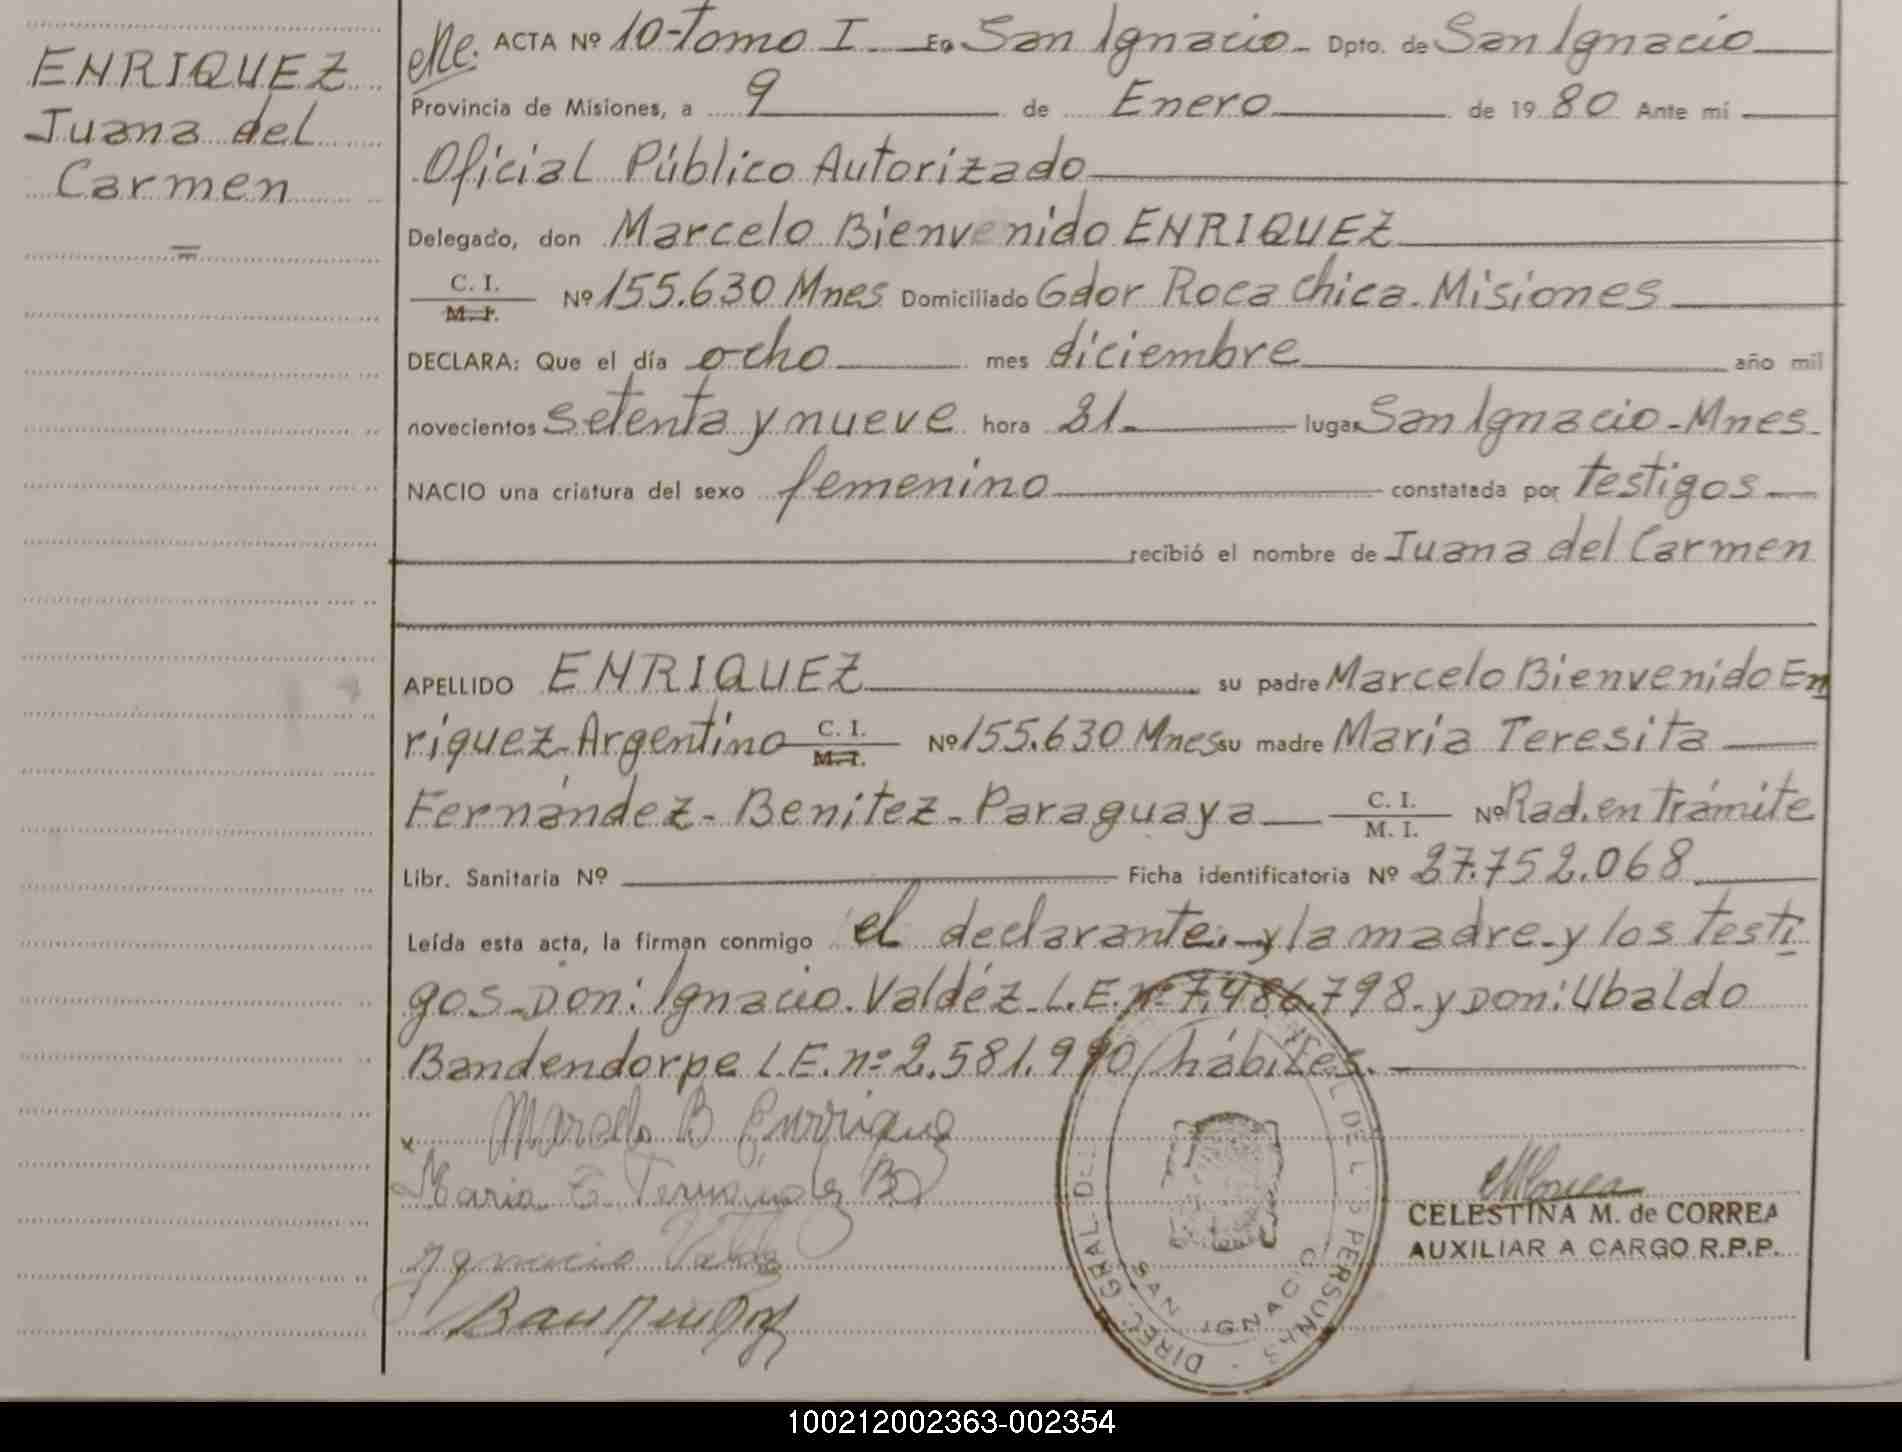 ENRIQUEZ
Juana del
Carmen
ACTA Nº 10-Tomo I En San Ignacio Dpto. de San Ignacio
Provincia de Misiones, a 9 de Enero de 1980 Ante mí
Oficial Público Autorizado
Delegado, don Marcelo Bienvenido ENRIQUEZ
C. I.
M. I. Nº 155.630 Mnes Domiciliado Gdor Roca Chica. Misiones
DECLARA: Que el día ocho mes diciembre año mil
novecientos setenta y nueve hora 21. lugar San Ignacio-Mnes.
NACIO una criatura del sexo femenino constatada por testigos
recibió el nombre de Juana del Carmen
APELLIDO ENRIQUEZ su padre Marcelo Bienvenido En
riquez-Argentino C. I. M. I. Nº 155.630 Mnes su madre María Teresita
Fernández-Benítez-Paraguaya C. I. M. I. Nº Rad. en Trámite
Libr. Sanitaria Nº Ficha identificatoria Nº 27.752.068
Leída esta acta, la firman conmigo el declarante.-y la madre-y los testi
gos-Don: Ignacio Valdéz-L.E. nº 7.486.798-y Don: Ubaldo
Bandendorpe L.E. nº 2.581.990/hábiles.
Marcelo B Enrriquez
Maria T. Fernández B
Ygnacio Valdez
DIREC. GRAL DE L'S PERSONAS
SAN IGNACIO
CELESTINA M. de CORREA
AUXILIAR A CARGO R.P.P.
100212002363-002354